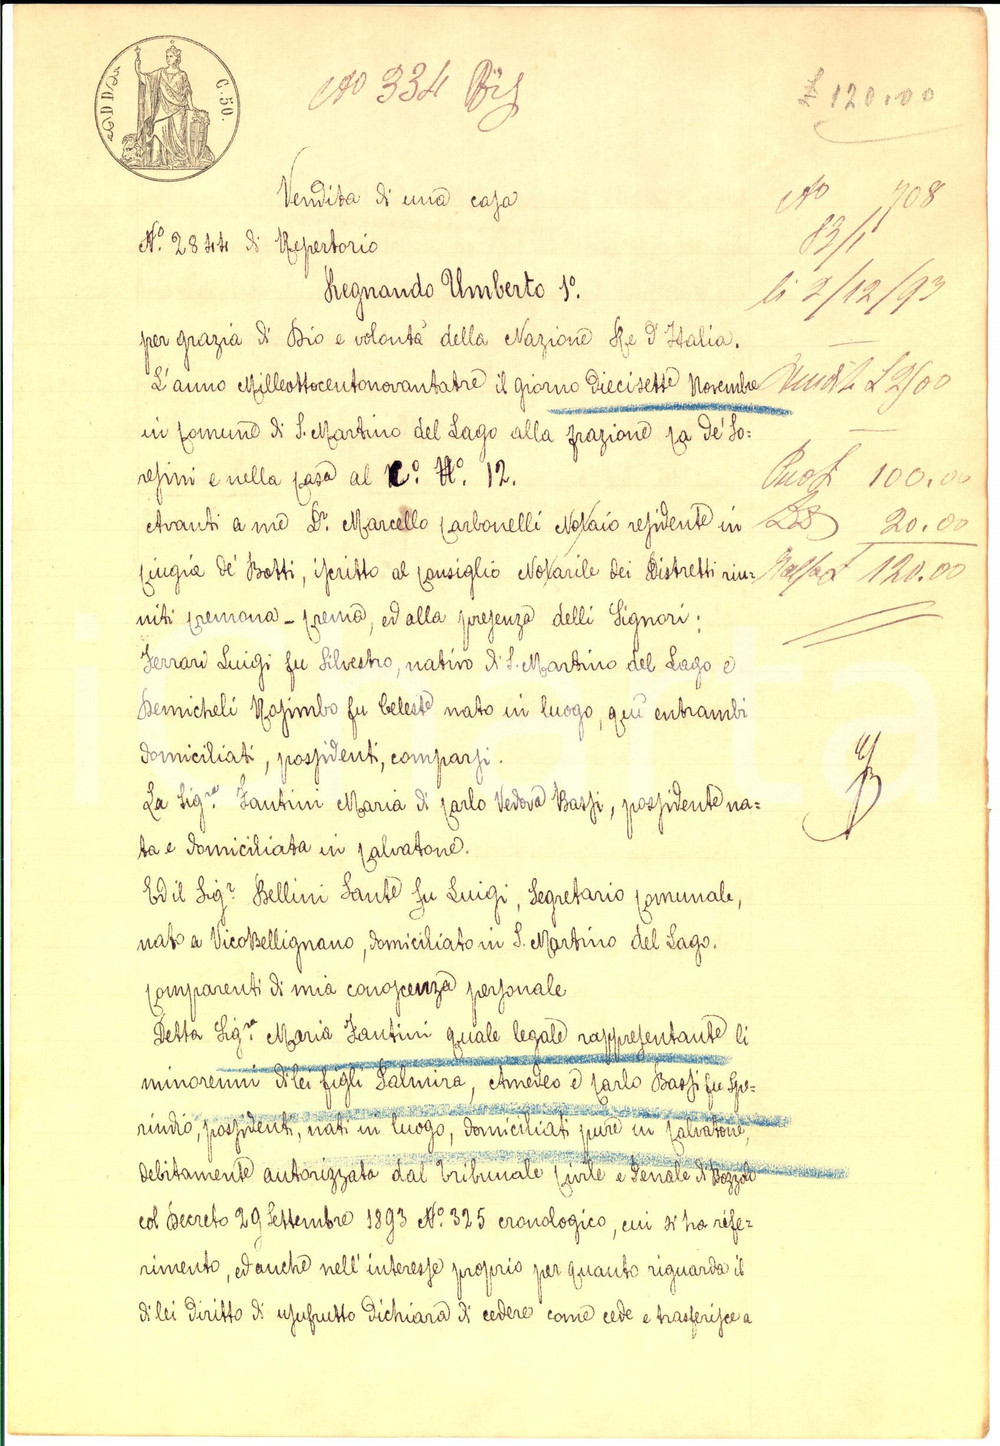 C. 50.
No 334 Bis
120.00
Vendita di una casa
No 708
N.o 2844 di Repertorio
83/1
Regnando Umberto 1o.
li 2/12/93
per grazia di Dio e volontà della Nazione Re d'Italia.
L'anno Milleottocentonovantatre il giorno diecisette Novembre
in Comune di S. Martino del Lago alla frazione Ca de' So=
resini e nella Casa al C.o N.o 12.
100.00
Avanti a me Dr. Marcello Carbonelli Notaio residente in
20.00
Cingia de' Botti, iscritto al Consiglio Notarile dei Distretti riu=
120.00
niti Cremona - Crema, ed alla presenza delli Signori:
Ferrari Luigi fu Silvestro, nativo di S. Martino del Lago e
Demicheli Rosimbo fu Celeste nato in luogo, qui entrambi
domiciliati, possidenti, comparsi.
La Sig.ra Fantini Maria di Carlo Vedova Bassi, possidente na=
ta e domiciliata in Calvatone.
Ed il Sig.r Bellini Sante fu Luigi, Segretario Comunale,
nato a VicoBellignano, domiciliato in S. Martino del Lago.
Comparenti di mia conoscenza personale
Detta Sig.ra Maria Fantini quale legale rappresentante li
minorenni di lei figli Palmira, Amedeo e Carlo Bassi fu Spi=
ridio, possidenti, nati in luogo, domiciliati pure in Calvatone,
debitamente autorizzata dal Tribunale Civile e Penale di Bozzolo
col Decreto 29 Settembre 1893 N.o 325 cronologico, cui si ha rife=
rimento, ed anche nell'interesse proprio per quanto riguarda il
di lei diritto di usufrutto dichiara di cedere come cede e trasferisce a